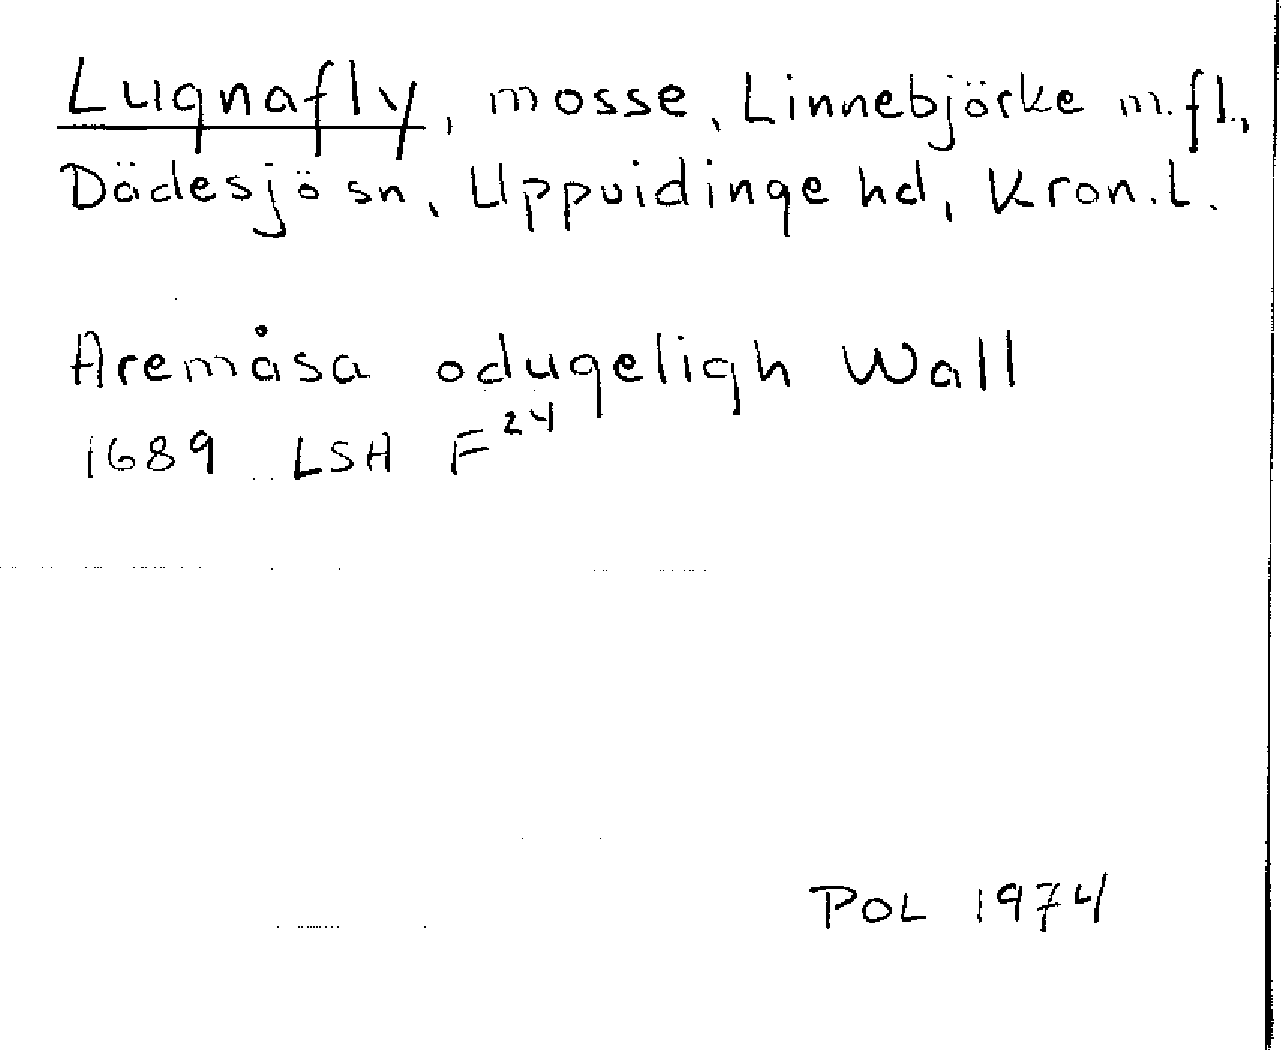 Lugnafly, mosse, Linnebjörke m.fl.,
Dädesjö sn, Uppvidinge hd, Kron.L.
Aremåsa odugeligh Wall
1689 LSA F24
POL 1974